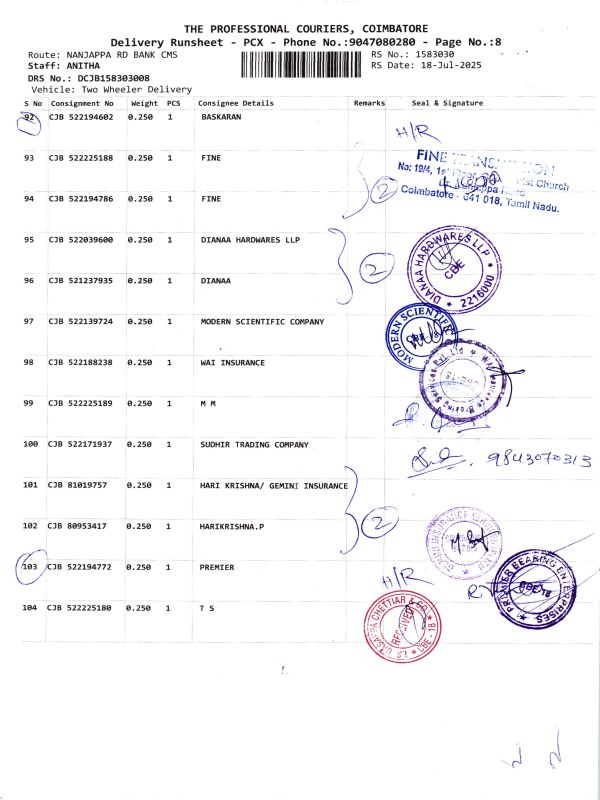 THE PROFESSIONAL COURIERS, COIMBATORE
Delivery Runsheet - PCX - Phone No.:9047080280 - Page No.:8
Route: NANJAPPA RD BANK CMS
RS No.: 1583030
Staff: ANITHA
RS Date: 18-Jul-2025
DRS No.: DCJB158303008
Vehicle: Two Wheeler Delivery
S No Consignment No Weight PCS Consignee Details Remarks Seal & Signature
92 CJB 522194602 0.250 1 BASKARAN H/R
93 CJB 522225188 0.250 1 FINE
94 CJB 522194786 0.250 1 FINE
2
No: 19/4, 1st
Church
Coimbatore - 641 018, Tamil Nadu.
95 CJB 522039600 0.250 1 DIANAA HARDWARES LLP
96 CJB 521237935 0.250 1 DIANAA
2
DIANAA HARDWARES LLP
CBE
2216000
97 CJB 522139724 0.250 1 MODERN SCIENTIFIC COMPANY
MODERN SCIENTIFIC
98 CJB 522188238 0.250 1 WAI INSURANCE
99 CJB 522225189 0.250 1 M M
100 CJB 522171937 0.250 1 SUDHIR TRADING COMPANY
9843070313
101 CJB 81019757 0.250 1 HARI KRISHNA/ GEMINI INSURANCE
102 CJB 80953417 0.250 1 HARIKRISHNA.P
2
103 CJB 522194772 0.250 1 PREMIER H/R
PREMIER BEARING ENTERPRISES
CBE-18
104 CJB 522225180 0.250 1 T S
CHETTIAR & CO
RECEIVED
CBE - 18